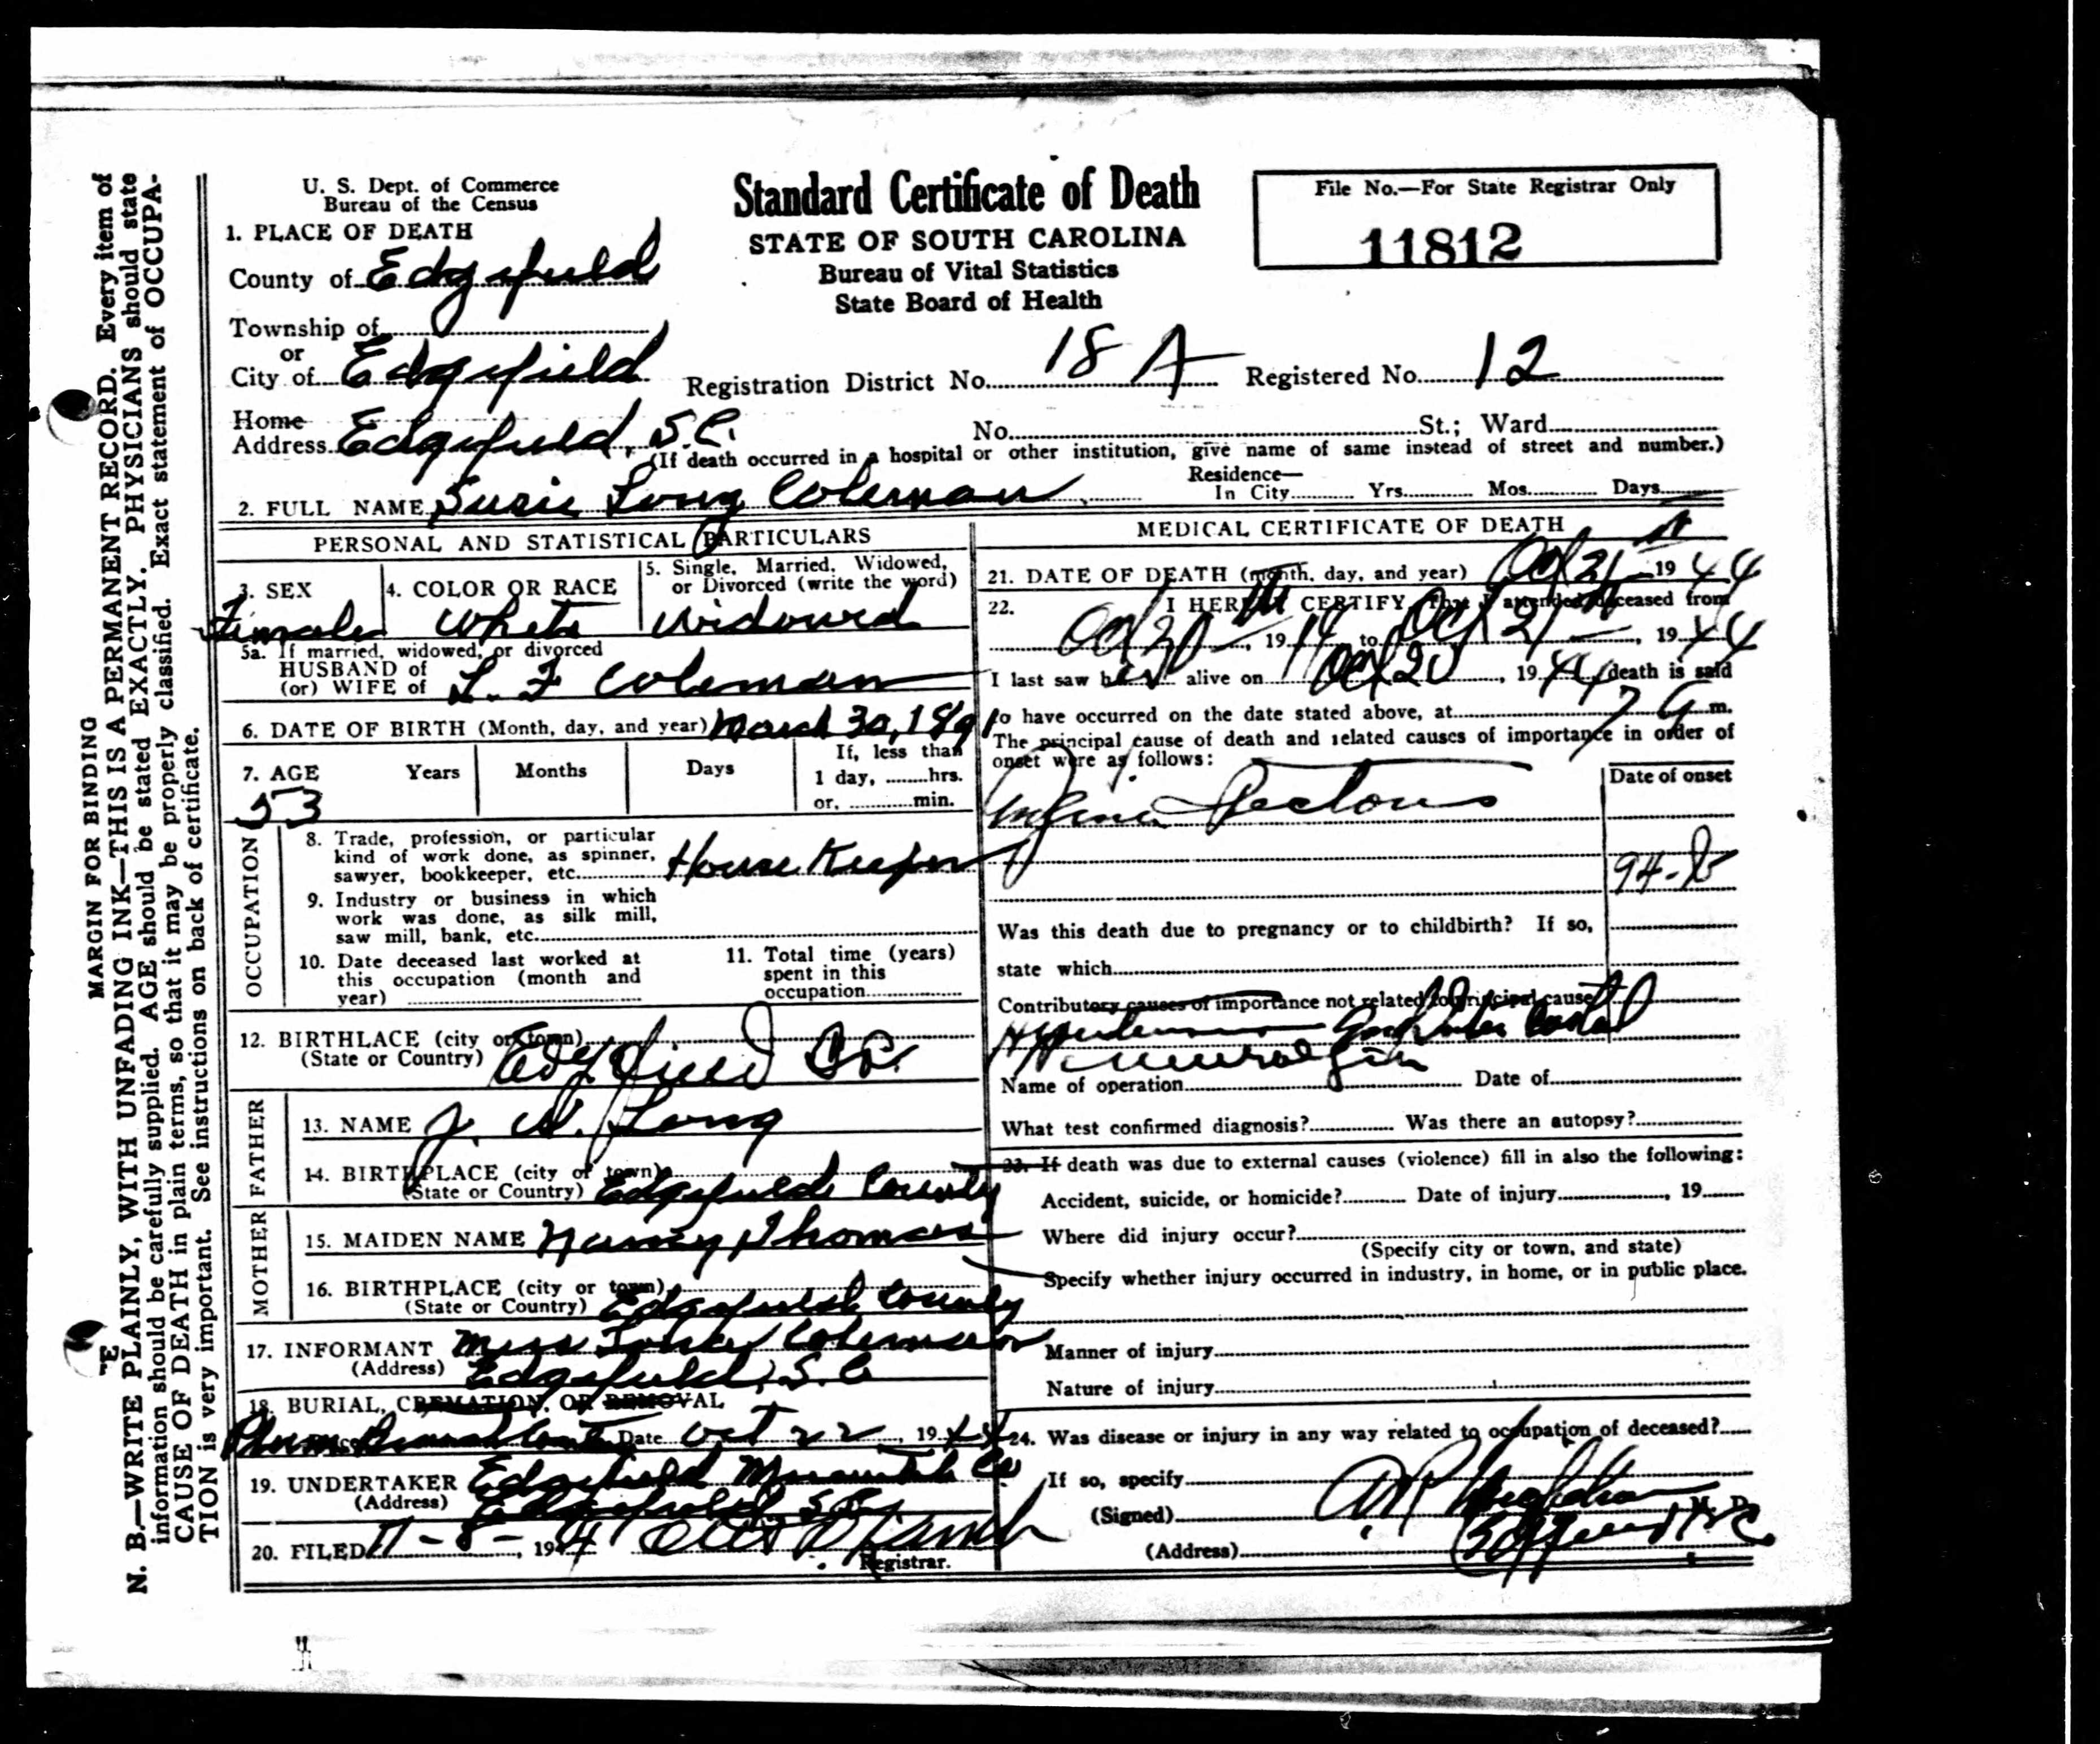 U. S. Dept. of Commerce
Bureau of the Census
Standard Certificate of Death
STATE OF SOUTH CAROLINA
Bureau of Vital Statistics
State Board of Health
File No.—For State Registrar Only
11812
1. PLACE OF DEATH
County of Edgefield
Township of
or
City of Edgefield
Registration District No. 18 A Registered No. 12
Home
Address Edgefield, S.C. No. St.; Ward
(If death occurred in a hospital or other institution, give name of same instead of street and number.)
2. FULL NAME Susie Long Coleman
Residence—
In City Yrs. Mos. Days
PERSONAL AND STATISTICAL PARTICULARS
3. SEX
Female
4. COLOR OR RACE
White
5. Single, Married, Widowed,
or Divorced (write the word)
Widowed
5a. If married, widowed, or divorced
HUSBAND of
(or) WIFE of L. F Coleman
6. DATE OF BIRTH (Month, day, and year) March 30, 1891
7. AGE Years Months Days
53
If, less than
1 day, hrs.
or, min.
OCCUPATION
8. Trade, profession, or particular
kind of work done, as spinner,
sawyer, bookkeeper, etc. House Keeper
9. Industry or business in which
work was done, as silk mill,
saw mill, bank, etc.
10. Date deceased last worked at
this occupation (month and
year)
11. Total time (years)
spent in this
occupation
12. BIRTHLACE (city or town)
(State or Country) Edgefield S.C.
FATHER
13. NAME J. Long
14. BIRTHPLACE (city or town)
(State or Country) Edgefield County
MOTHER
15. MAIDEN NAME Nancy Thomas
16. BIRTHPLACE (city or town)
(State or Country) Edgefield County
17. INFORMANT Miss Coleman
(Address) Edgefield, S.C
18. BURIAL, CREMATION, OR REMOVAL
Plum Branch Date Oct 22, 1944
19. UNDERTAKER Edgefield Mercantile Co
(Address) Edgefield S.C.
20. FILED 11-8-, 1944
Registrar.
MEDICAL CERTIFICATE OF DEATH
21. DATE OF DEATH (month, day, and year) Oct 21 1944
22. I HEREBY CERTIFY, That I attended deceased from
Oct 20, 1944 to Oct 21, 1944
I last saw her alive on Oct 20, 1944 death is said
to have occurred on the date stated above, at 7 a m.
The principal cause of death and related causes of importance in order of
onset were as follows:
Date of onset
Angina Pectoris
94-
Was this death due to pregnancy or to childbirth? If so,
state which
Contributory causes of importance not related to principal cause
Hypertension and Inter Costal
Neuralgia
Name of operation Date of
What test confirmed diagnosis? Was there an autopsy?
23. If death was due to external causes (violence) fill in also the following:
Accident, suicide, or homicide? Date of injury, 19
Where did injury occur?
(Specify city or town, and state)
Specify whether injury occurred in industry, in home, or in public place.
Manner of injury
Nature of injury
24. Was disease or injury in any way related to occupation of deceased?
If so, specify
(Signed) M. D.
(Address) Edgefield S.C.
MARGIN FOR BINDING
N. B.—WRITE PLAINLY, WITH UNFADING INK—THIS IS A PERMANENT RECORD. Every item of
information should be carefully supplied. AGE should be stated EXACTLY. PHYSICIANS should state
CAUSE OF DEATH in plain terms, so that it may be properly classified. Exact statement of OCCUPA-
TION is very important. See instructions on back of certificate.